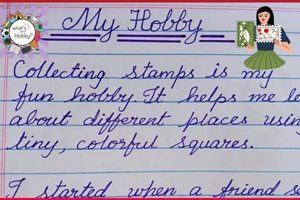 what's your Hobby?
My Hobby
Collecting stamps is my
fun hobby. It helps me le
about different places usin
tiny, colorful squares.
I started when a friend se